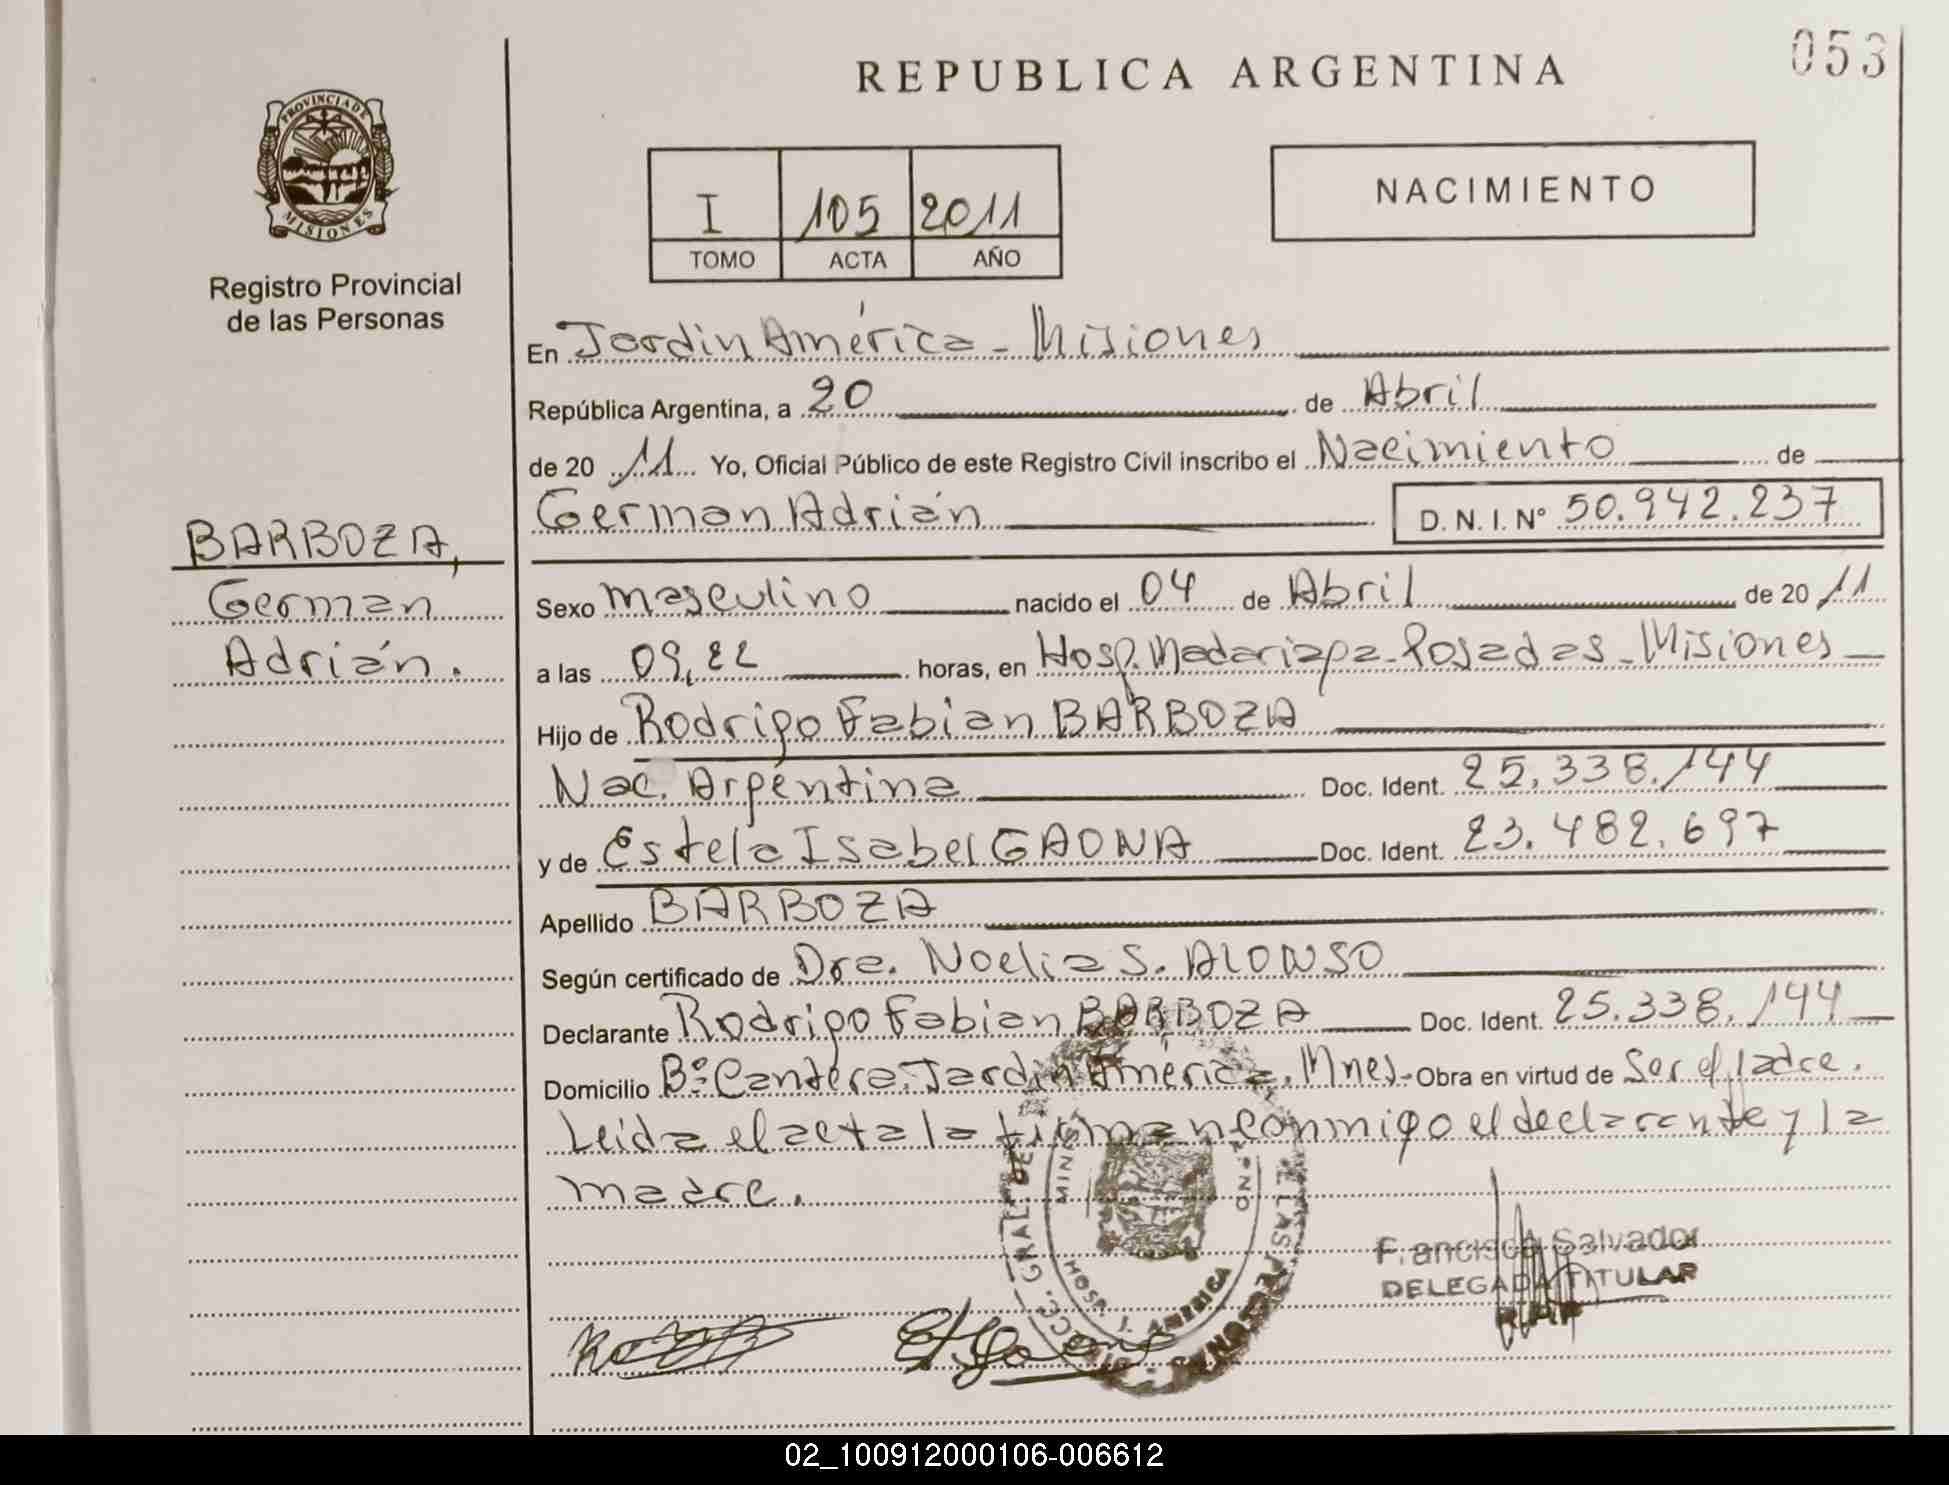 053
REPUBLICA ARGENTINA
PROVINCIA DE
MISIONES
Registro Provincial
de las Personas
I 105 2011
TOMO ACTA AÑO
NACIMIENTO
En Jardin América - Misiones
República Argentina, a 20 de Abril
de 20 11 Yo, Oficial Público de este Registro Civil inscribo el Nacimiento de
German Adrián D. N. I. Nº 50.942.237
BARBOZA,
German
Adrián.
Sexo masculino nacido el 04 de Abril de 20 11
a las 09,22 horas, en Hosp. Madariaga - Posadas - Misiones
Hijo de Rodrigo Fabian BARBOZA
Nac. Argentina Doc. Ident. 25.338.144
y de Estela Isabel GAONA Doc. Ident. 23.482.697
Apellido BARBOZA
Según certificado de Dra. Noelia S. ALONSO
Declarante Rodrigo Fabian BARBOZA Doc. Ident. 25.338.144
Domicilio Bº Cantera. Jardin América. Mnes - Obra en virtud de Ser el padre.
Leida el acta la firman conmigo el declarante y la
madre.
GRAL. DE LAS PERSONAS
HOSP. J. AMERICA
Francisca Salvador
DELEGADA TITULAR
02_100912000106-006612